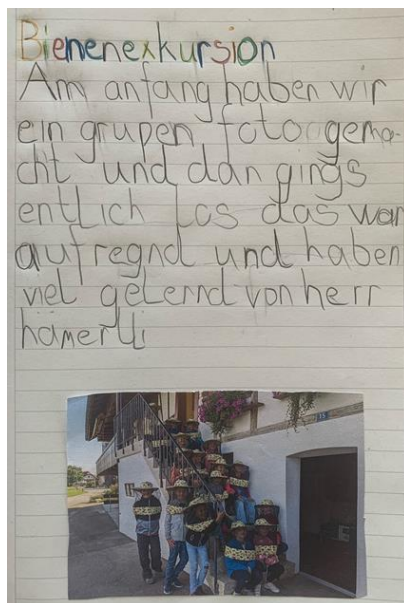 Bienenexkursion
Am anfang haben wir
ein grupen foto gema-
cht und dan gings
entlich los das war
aufregnd und haben
viel gelernd von herr
hämerlli